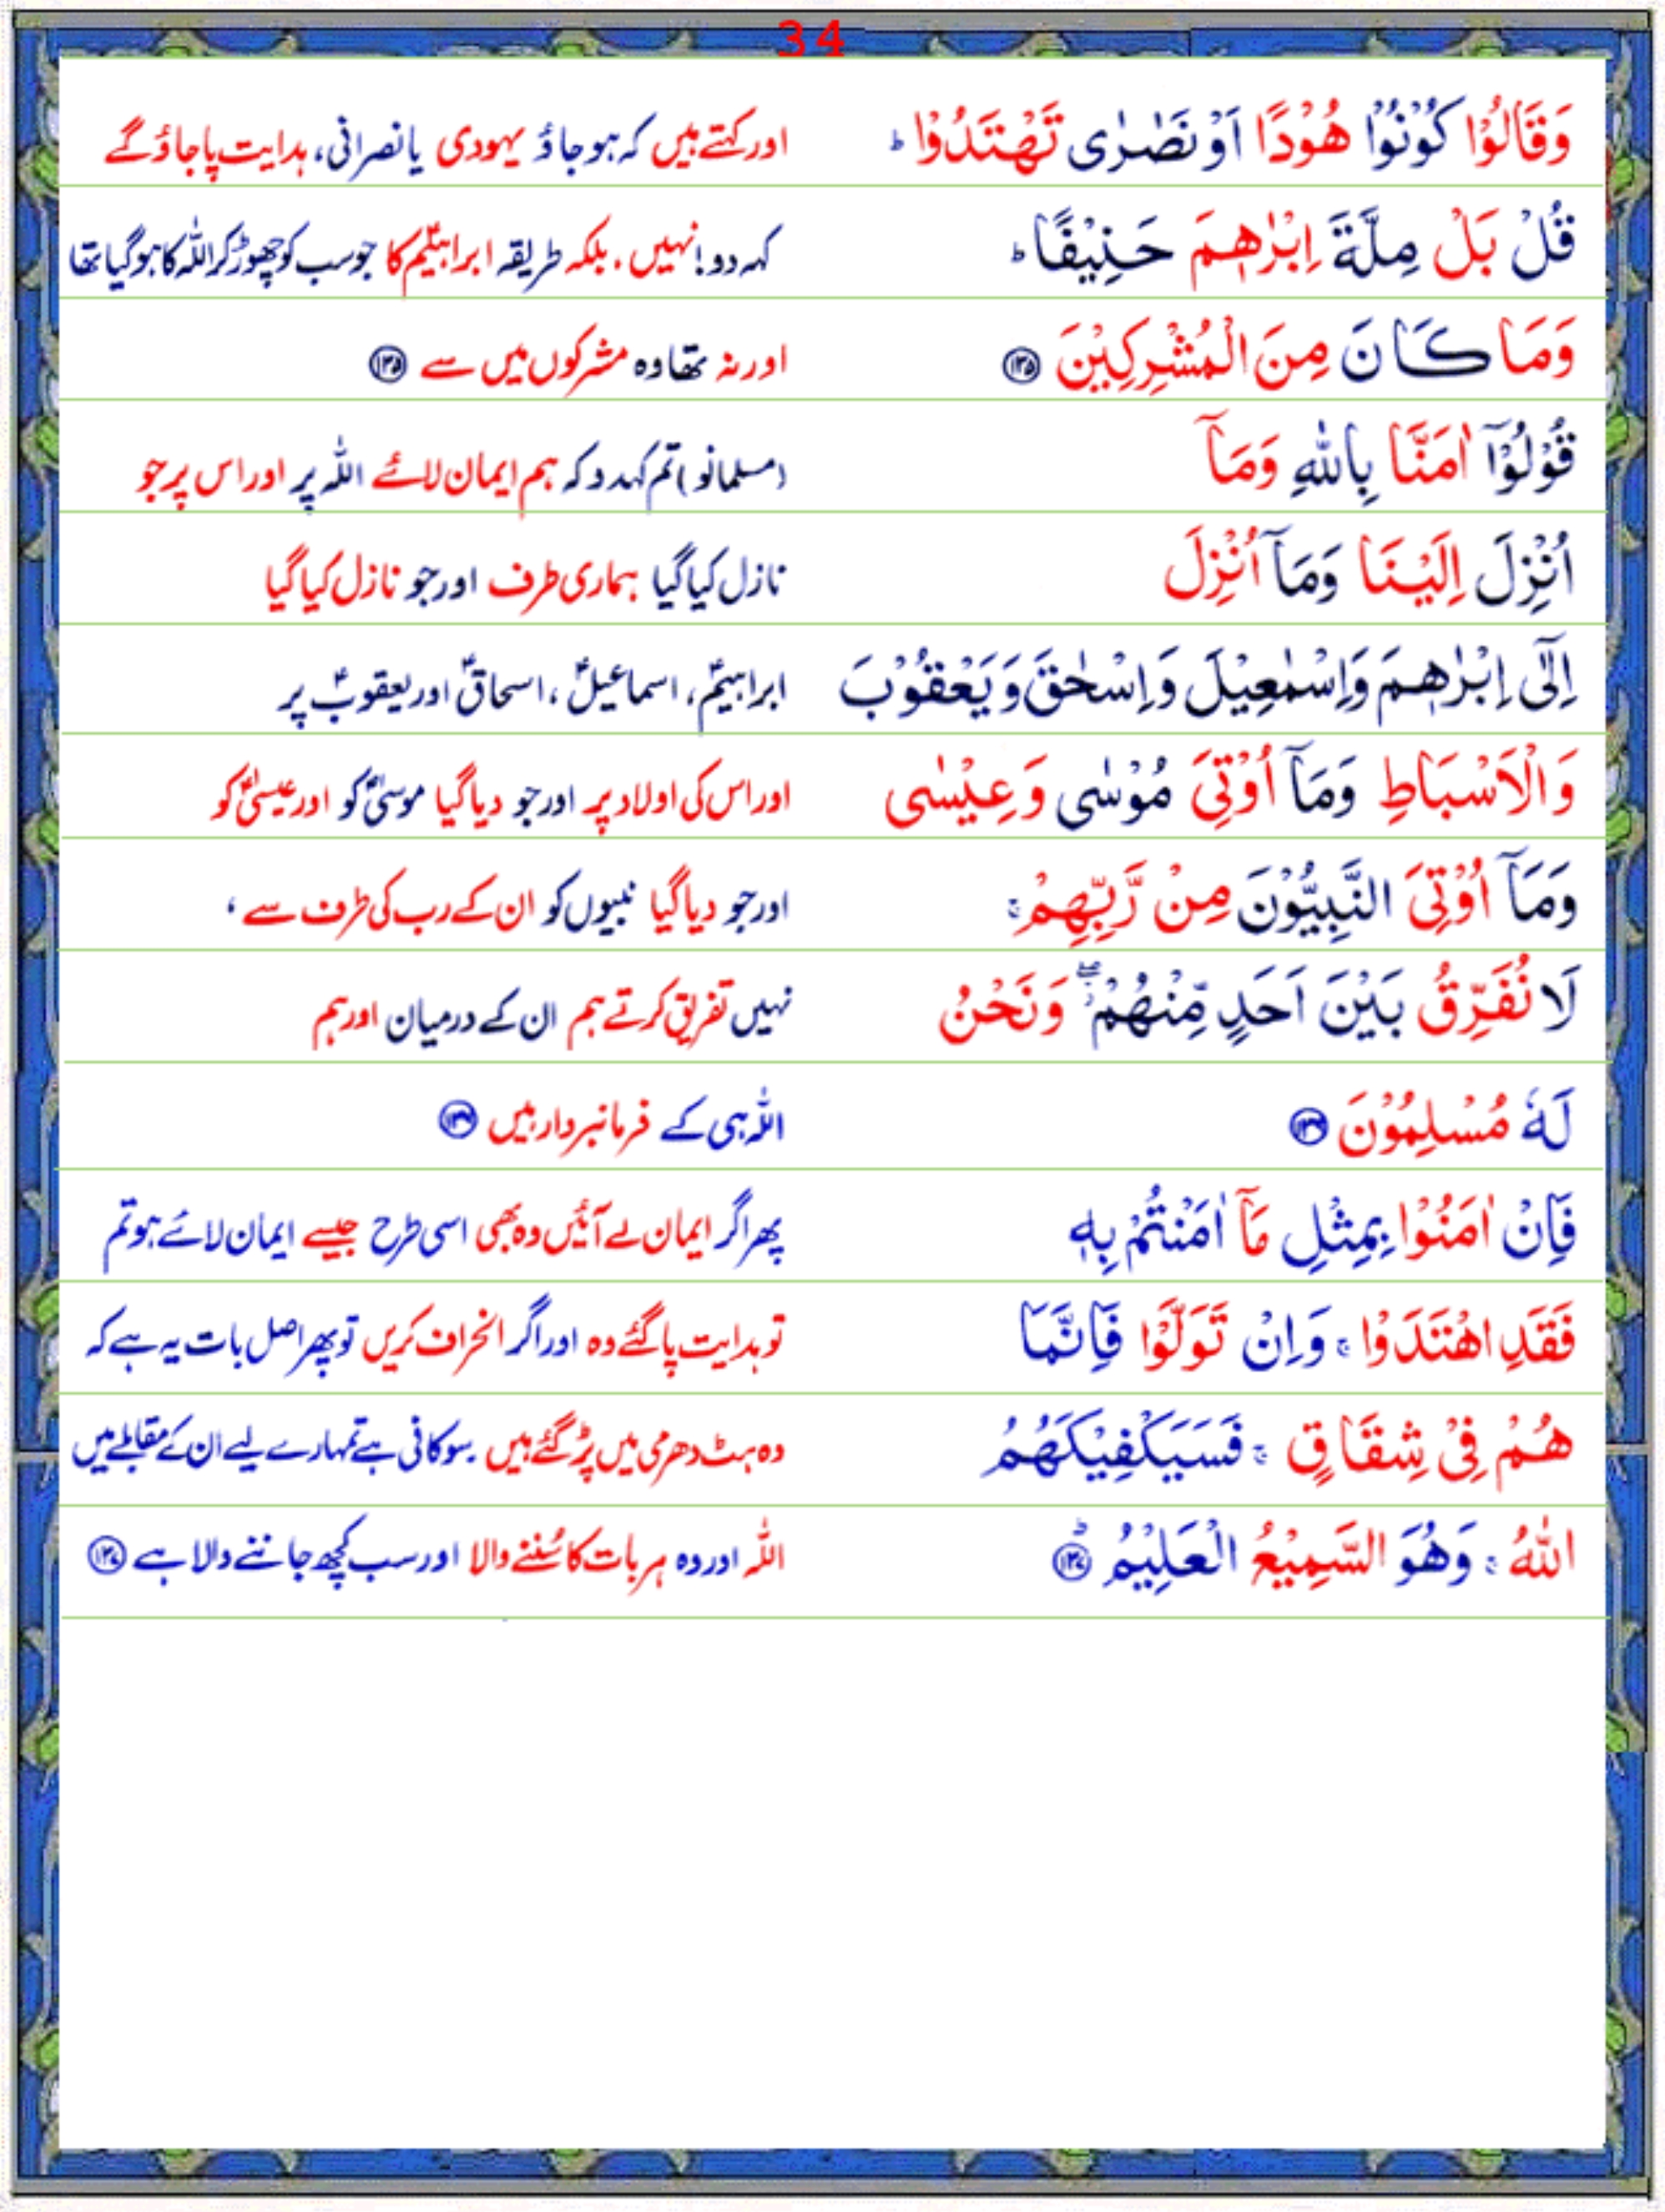 34
وَقَالُوْا كُوْنُوْا هُوْدًا اَوْ نَصٰرٰى تَهْتَدُوْا ؕ اور کہتے ہیں کہ ہو جاؤ یہودی یا نصرانی، ہدایت پا جاؤ گے
قُلْ بَلْ مِلَّةَ اِبْرٰهٖمَ حَنِيْفًا ؕ کہہ دو! نہیں، بلکہ طریقہ ابراہیمؑ کا جو سب کو چھوڑ کر اللہ کا ہو گیا تھا
وَمَا كَانَ مِنَ الْمُشْرِكِيْنَ ﴿۱۳۵﴾ اور نہ تھا وہ مشرکوں میں سے ﴿۱۳۵﴾
قُوْلُوْٓا اٰمَنَّا بِاللّٰهِ وَمَآ (مسلمانو) تم کہہ دو کہ ہم ایمان لائے اللہ پر اور اس پر جو
اُنْزِلَ اِلَيْنَا وَمَآ اُنْزِلَ نازل کیا گیا ہماری طرف اور جو نازل کیا گیا
اِلٰٓى اِبْرٰهٖمَ وَاِسْمٰعِيْلَ وَاِسْحٰقَ وَيَعْقُوْبَ ابراہیمؑ، اسماعیلؑ، اسحاقؑ اور یعقوبؑ پر
وَالْاَسْبَاطِ وَمَآ اُوْتِىَ مُوْسٰى وَعِيْسٰى اور اس کی اولاد پر اور جو دیا گیا موسیٰؑ کو اور عیسیٰؑ کو
وَمَآ اُوْتِىَ النَّبِيُّوْنَ مِنْ رَّبِّهِمْ ۚ اور جو دیا گیا نبیوں کو ان کے رب کی طرف سے ،
لَا نُفَرِّقُ بَيْنَ اَحَدٍ مِّنْهُمْ ۖ وَنَحْنُ نہیں تفریق کرتے ہم ان کے درمیان اور ہم
لَهٗ مُسْلِمُوْنَ ﴿۱۳۶﴾ اللہ ہی کے فرمانبردار ہیں ﴿۱۳۶﴾
فَاِنْ اٰمَنُوْا بِمِثْلِ مَآ اٰمَنْتُمْ بِهٖ پھر اگر ایمان لے آئیں وہ بھی اسی طرح جیسے ایمان لائے ہو تم
فَقَدِ اهْتَدَوْا ۚ وَاِنْ تَوَلَّوْا فَاِنَّمَا تو ہدایت پا گئے وہ اور اگر انحراف کریں تو پھر اصل بات یہ ہے کہ
هُمْ فِىْ شِقَاقٍ ۚ فَسَيَكْفِيْكَهُمُ وہ ہٹ دھرمی میں پڑ گئے ہیں ۔ سو کافی ہے تمہارے لیے ان کے مقابلے میں
اللّٰهُ ۚ وَهُوَ السَّمِيْعُ الْعَلِيْمُ ؕ ﴿۱۳۷﴾ اللہ اور وہ ہر بات کا سُننے والا اور سب کچھ جاننے والا ہے ﴿۱۳۷﴾